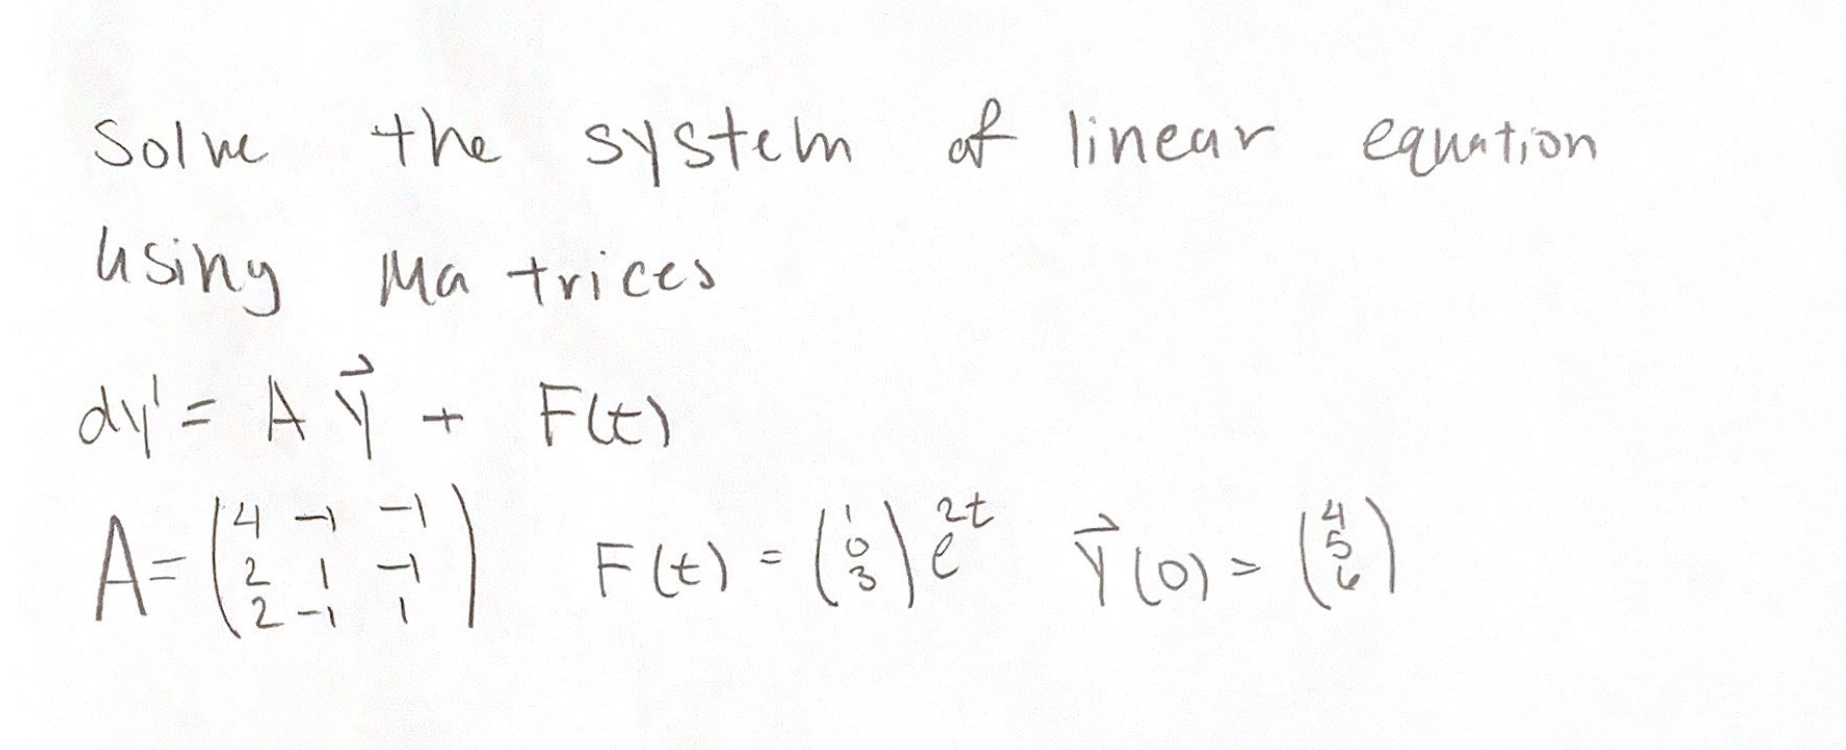 Solve the system of linear equation
using Matrices
dy' = A Y⃗ + F(t)
A = (4 -1 -1; 2 1 -1; 2 -1 1) F(t) = (1; 0; 3) e^2t Y⃗(0) = (4; 5; 6)